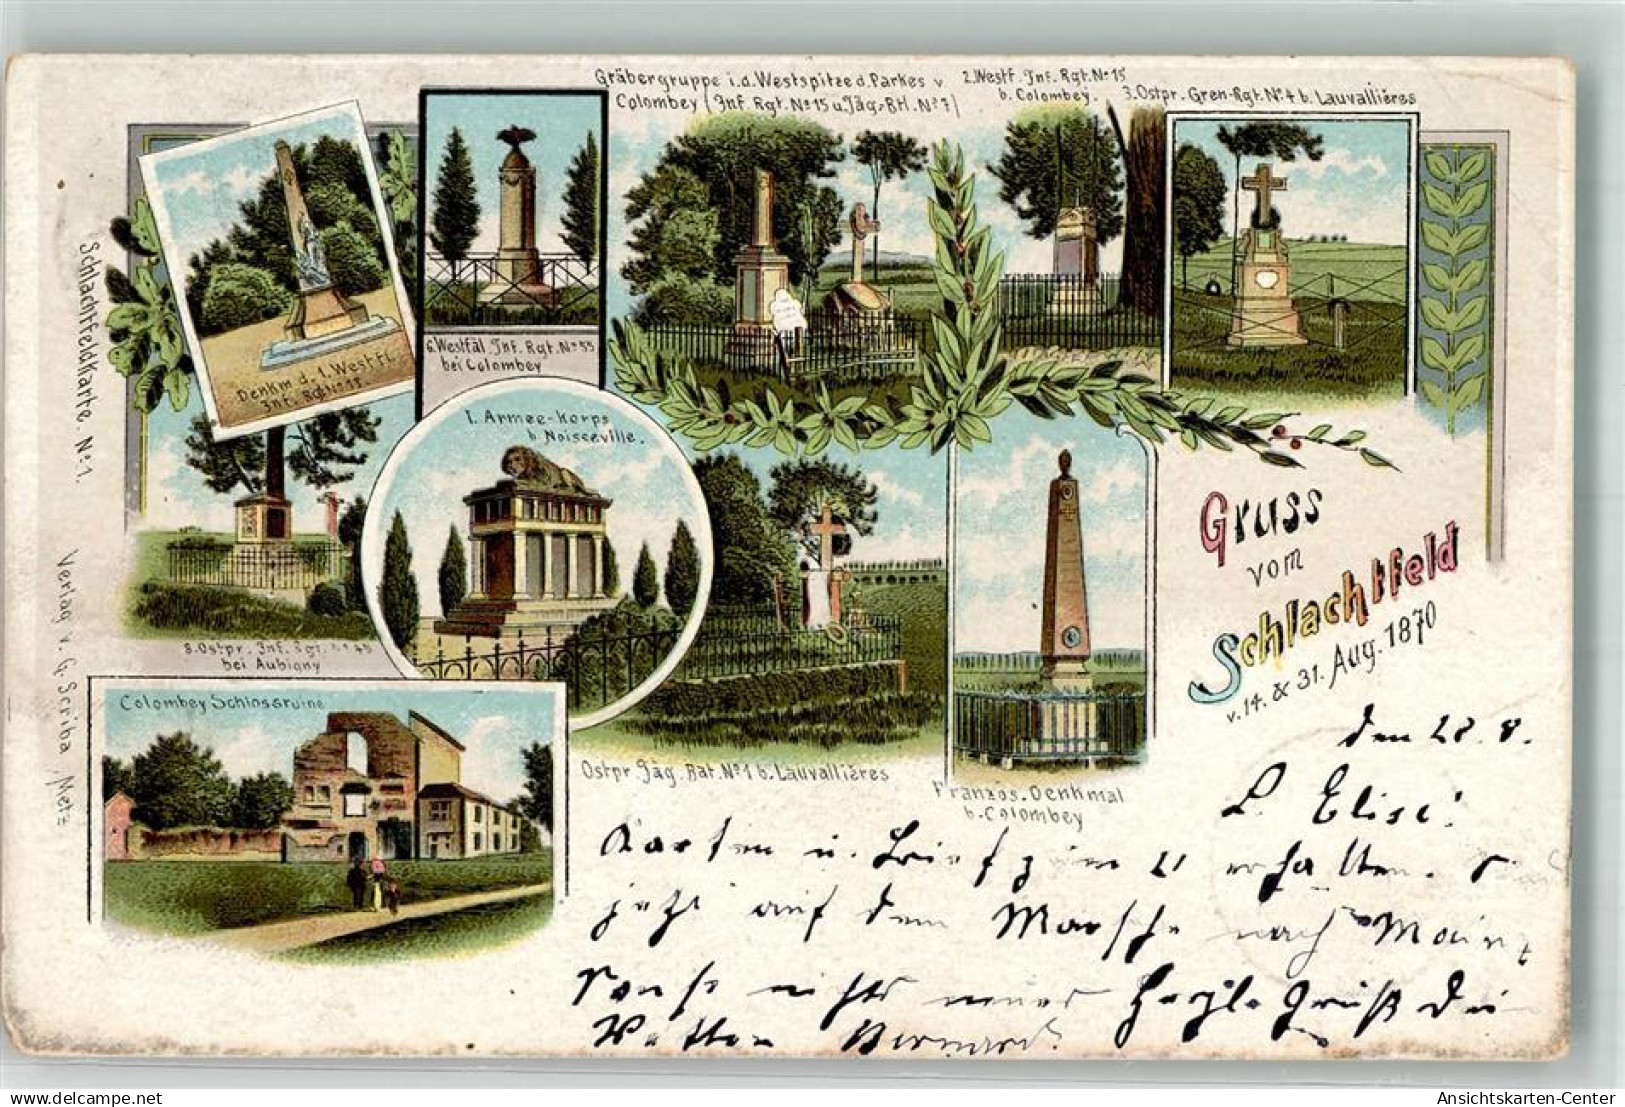 Gräbergruppe i.d. Westspitze d. Parkes v
Colombey (Inf. Rgt. No 15 u. Jäg.-Btl. No 7)
2. Westf. Inf. Rgt. No 15
b. Colombey.
3. Ostpr. Gren-Rgt. No 4 b. Lauvallières
Denkm d. 1. Westfl.
Inf. Rgt. No 13.
6. Westfäl. Inf. Rgt. No 55
bei Colombey
I. Armee-Korps
b. Noisseville.
8. Ostpr. Inf. Rgt. No 45
bei Aubigny
Colombey Schlossruine
Ostpr. Jäg. Bat. No 1 b. Lauvallières
Französ. Denkmal
b. Colombey
Schlachtfeldkarte. No 1.
Verlag v. G. Scriba, Metz
Gruss
vom
Schlachtfeld
v. 14. & 31. Aug. 1870
den 28. 8.
L. Elise!
Karten u. Brief erhalten.
jetzt auf dem Marsche nach Mainz
Sonst nichts neues Herzl. Gruß Dein
Vetter Bernard.
Ansichtskarten-Center
www.delcampe.net